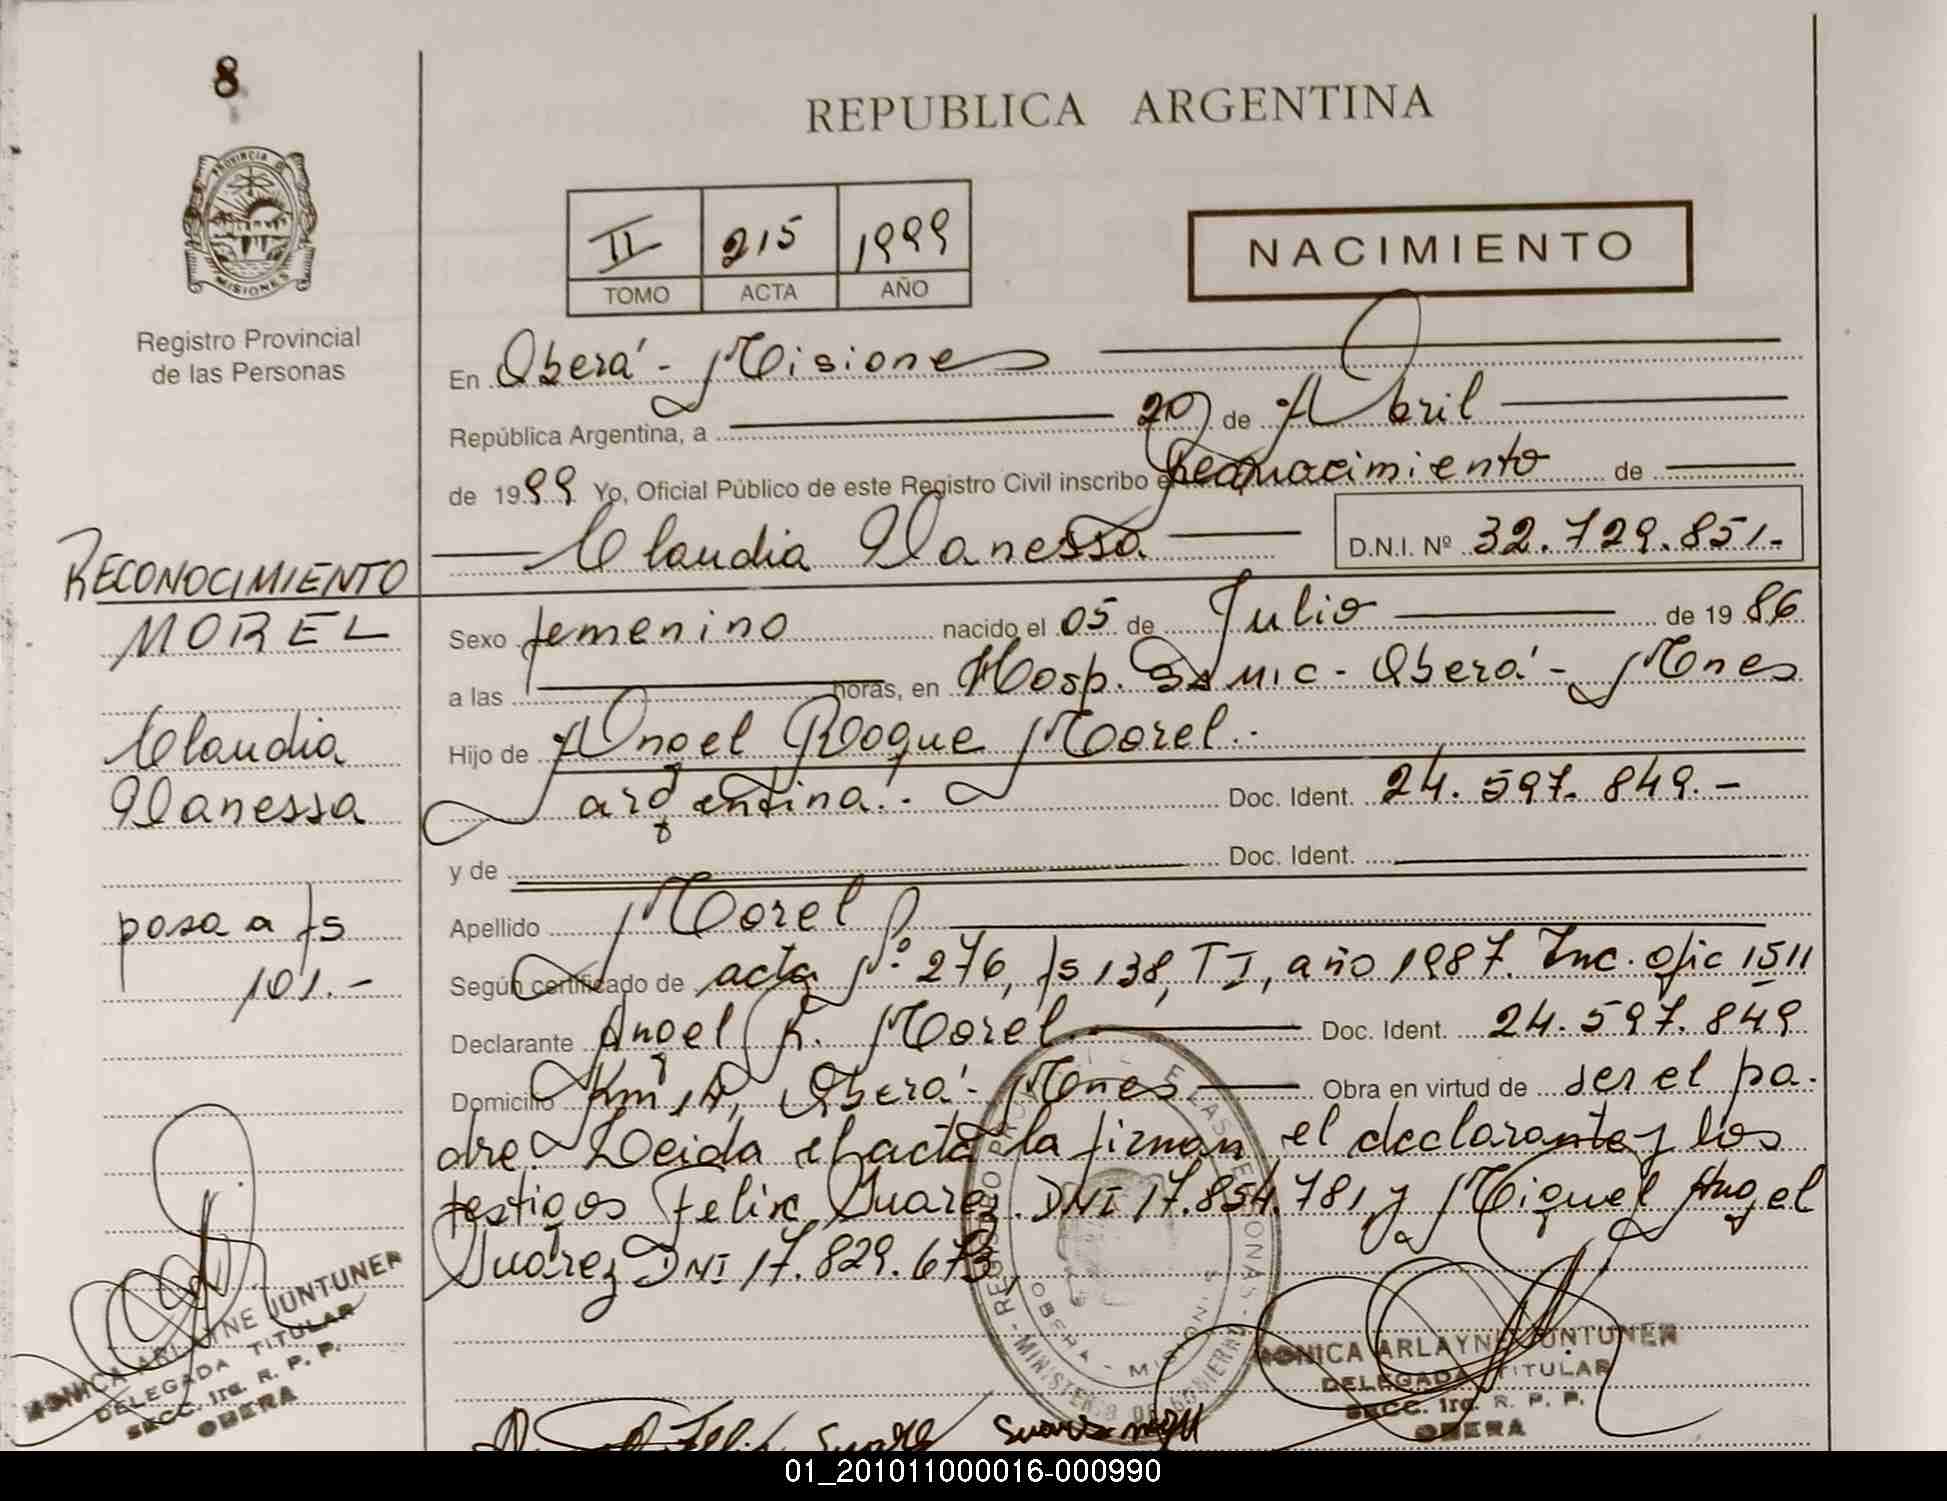 8
REPUBLICA ARGENTINA
PROVINCIA D
MISIONES
Registro Provincial
de las Personas
II 215 1999
TOMO ACTA AÑO
NACIMIENTO
En Oberá - Misiones
República Argentina, a 20 de Abril
de 1999 Yo, Oficial Público de este Registro Civil inscribo el nacimiento de
Claudia Vanessa D.N.I. Nº 32.729.851.-
RECONOCIMIENTO
MOREL
Claudia
Vanessa
pasa a fs
101.-
Sexo femenino nacido el 05 de Julio de 1986
a las horas, en Hosp. SAMIC - Oberá - Mnes
Hijo de Angel Roque Morel.-
argentina.- Doc. Ident. 24.597.849.-
y de Doc. Ident.
Apellido Morel
Según certificado de acta Nº 276, fs 138, T I, año 1987. Inc. ofic 1511
Declarante Angel R. Morel Doc. Ident. 24.597.849
Domicilio Km , Oberá - Mnes Obra en virtud de ser el pa-
dre. Leida el acta la firman el declarante y los
testigos Felix Suarez DNI 17.854.781 y Miguel Angel
Suárez DNI 17.829.673
MONICA ARLAYNE JUNTUNEN
DELEGADA TITULAR
SECC. 1ra. R. P. P.
OBERA
LAS PERSONAS - MINISTERIO DE GOBIERNO
OBERA - MISIONES
MONICA ARLAYNE JUNTUNEN
DELEGADA TITULAR
SECC. 1ra. R. P. P.
OBERA
Suarez
01_201011000016-000990